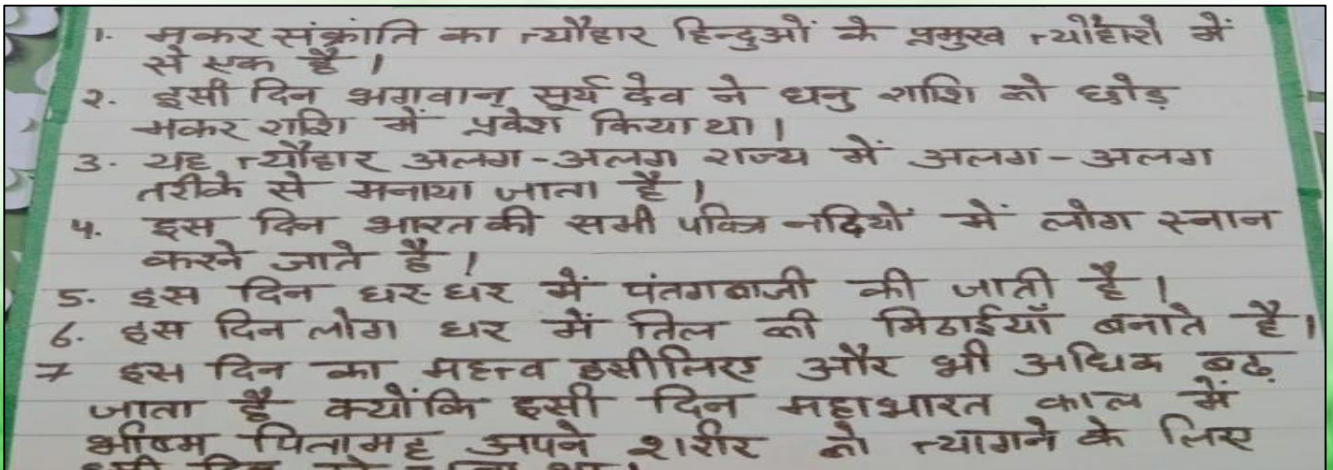 1. मकर संक्रांति का त्यौहार हिन्दुओं के प्रमुख त्यौहारों में
से एक है।
२. इसी दिन भगवान् सूर्य देव ने धनु राशि को छोड़
मकर राशि में प्रवेश किया था।
3. यह त्यौहार अलग-अलग राज्य में अलग-अलग
तरीके से मनाया जाता है।
4. इस दिन भारत की सभी पवित्र नदियों में लोग स्नान
करने जाते है।
5. इस दिन घर-घर में पंतगबाजी की जाती है।
6. इस दिन लोग घर में तिल की मिठाईयाँ बनाते है।
7 इस दिन का महत्व इसीलिए और भी अधिक बढ़
जाता है क्योंकि इसी दिन महाभारत काल में
भीष्म पितामह अपने शरीर को त्यागने के लिए
इसी दिन को था।